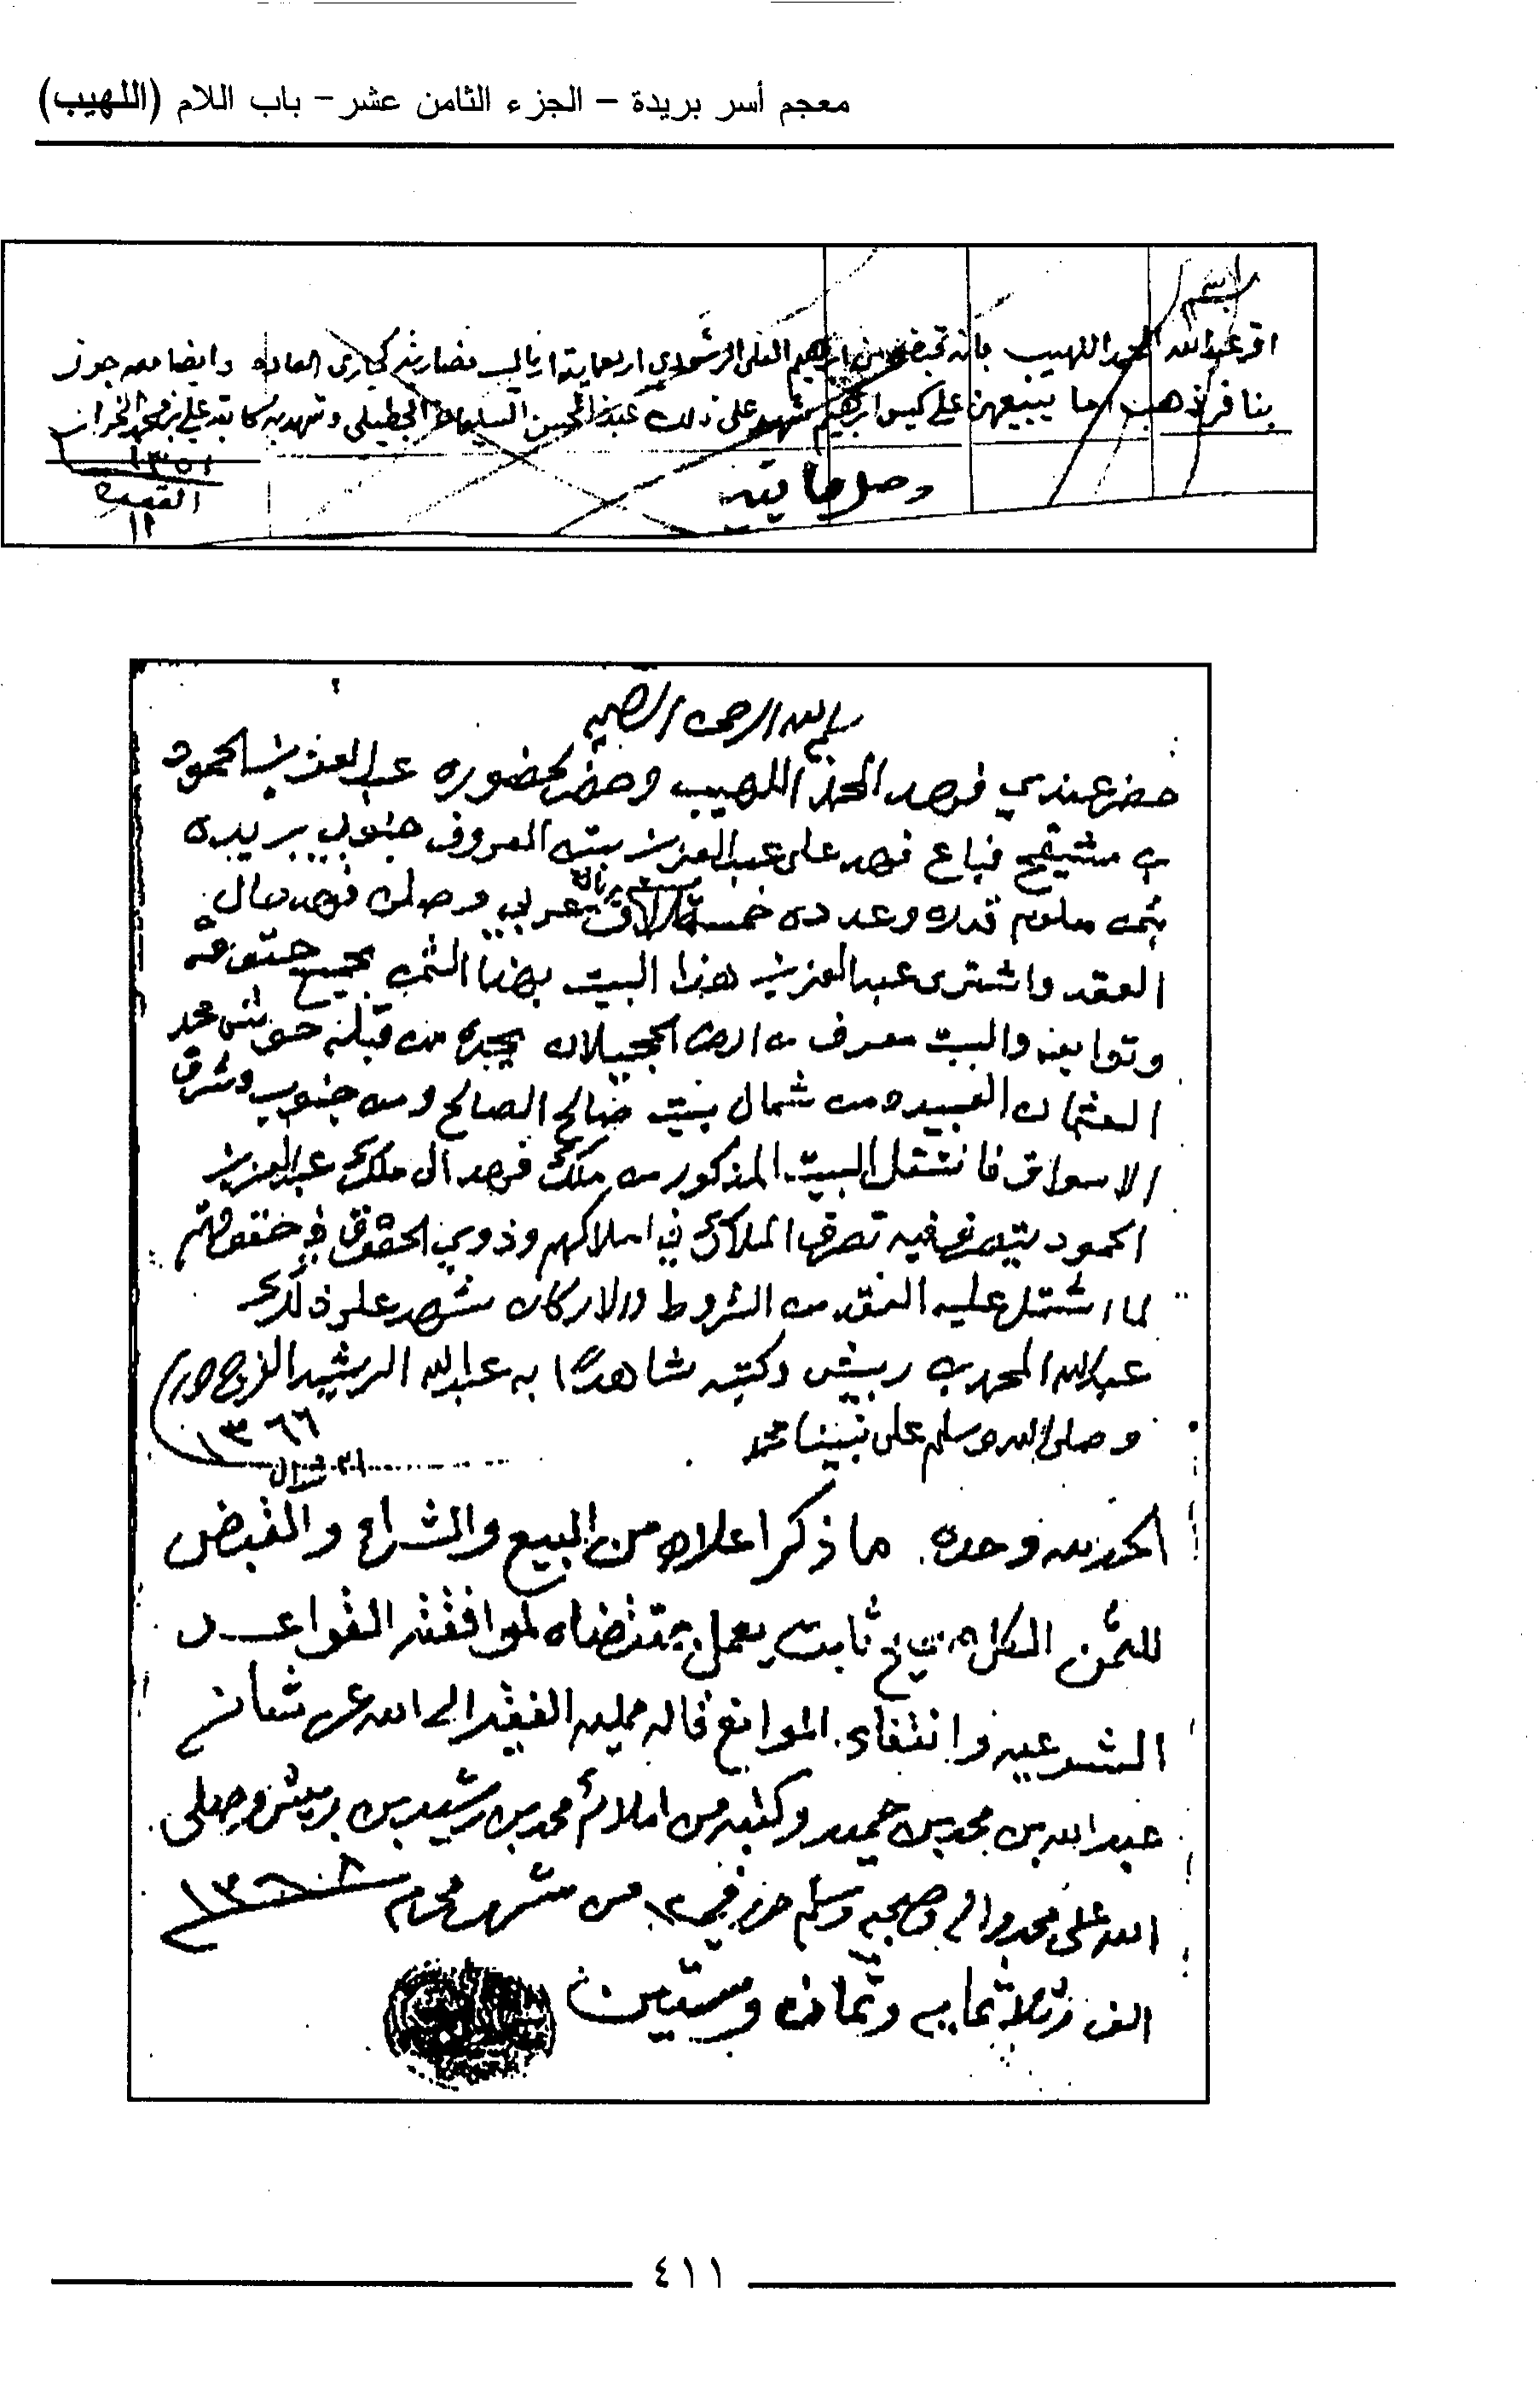 معجم أسر بريدة – الجزء الثامن عشر – باب اللام (اللهيب)
اقر عبدالله المحمد اللهيب بانه قبض من ابرهيم العلي الرشودي اربعماية اريالٍ مضاربه كجاري العاده وايضا معه جوز
بناقر ذهب يبيعهن على كيس ابرهيم شهد على ذلك عبدالمحسن السليمان وشهد به كاتبه علي بن محمد
١٣٥١
القعده
١٢
وصل مايتين
بسم الله الرحمن الرحيم
حضر عندي فهد المحمد اللهيب وحضر لحضوره عبدالعزيز الحمود
بن مشيقح فباع فهد على عبدالعزيز بيته المعروف جنوبي بريده
بثمن معلوم قدره وعدده خمسة الاف ريال عربي وصلن فهد حال
العقد واشترى عبدالعزيز هذا البيت بهذا الثمن بجميع حقوقه
وتوابعه والبيت معروف من ارض الجميلان يحده من قبله حوش محمد
العثمان العبيد ومن شمال بيت صالح الصالح ومن جنوب وشرق
الاسواق فانتقل البيت المذكور من ملك فهد الى ملك عبدالعزيز
الحمود يتصرف فيه تصرف الملاك في املاكهم وذوي الحقوق في حقوقهم
لما اشتمل عليه العقد من الشروط والاركان شهد على ذلك
عبدالله المحمد بن ربيش وكتبه شاهدًا به عبدالله الرشيد الفرج
١٣٦٦
وصلى الله وسلم على نبينا محمد
٢١ شوال
الحمد لله وحده. ما ذكر اعلاه من البيع والشراء والقبض
للثمن الكل صحيح ثابت يعمل بمقتضاه لموافقته القواعد
الشرعيه وانتفاء الموانع قاله ممليه الفقير الى الله عز شانه
عبدالله بن محمد بن حميد وكتبه من املائه محمد بن رشيد بن ربيش وصلى
الله على محمد واله وصحبه وسلم حرر في من شهر محرم ١٣٦٨
الف وثلاثمايه وثمان وستين
٤١١